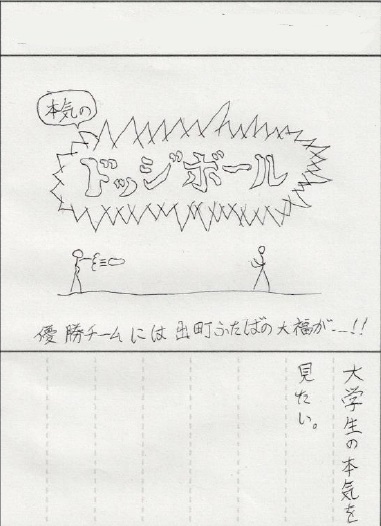 本気の
ドッジボール
優勝チームには出町ふたばの大福が…!!
大学生の本気を
見たい。